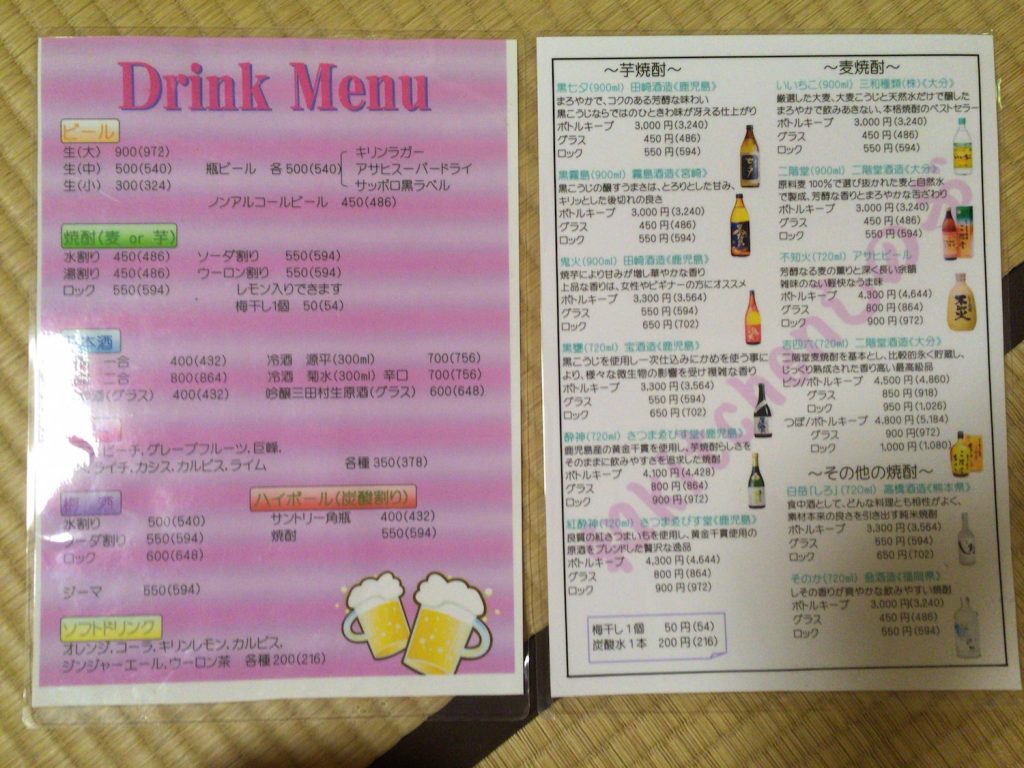 Drink Menu
ビール
生(大) 900(972)
生(中) 500(540) 瓶ビール 各500(540) キリンラガー
アサヒスーパードライ
生(小) 300(324) サッポロ黒ラベル
ノンアルコールビール 450(486)
焼酎(麦 or 芋)
水割り 450(486) ソーダ割り 550(594)
湯割り 450(486) ウーロン割り 550(594)
ロック 550(594) レモン入りできます
梅干し1個 50(54)
本酒
一合 400(432) 冷酒 源平(300ml) 700(756)
二合 800(864) 冷酒 菊水(300ml) 辛口 700(756)
酒(グラス) 400(432) 吟醸三田村生原酒(グラス) 600(648)
ピーチ,グレープフルーツ,巨蜂,
ライチ,カシス,カルピス,ライム 各種350(378)
梅 酒
水割り 500(540)
ソーダ割り 550(594)
ロック 600(648)
ハイボール(炭酸割り)
サントリー角瓶 400(432)
焼酎 550(594)
ジーマ 550(594)
ソフトドリンク
オレンジ,コーラ,キリンレモン,カルピス,
ジンジャーエール,ウーロン茶 各種200(216)
～芋焼酎～
黒七夕(900ml) 田崎酒造《鹿児島》
まろやかで、コクのある芳醇な味わい
黒こうじならではのひときわ味が冴える仕上がり
ボトルキープ 3,000円(3,240)
グラス 450円(486)
ロック 550円(594)
黒霧島(900ml) 霧島酒造《宮崎》
黒こうじの醸すうまさは、とろりとした甘み、
キリッとした後切れの良さ
ボトルキープ 3,000円(3,240)
グラス 450円(486)
ロック 550円(594)
鬼火(900ml) 田崎酒造《鹿児島》
焼芋により甘みが増し華やかな香り
上品な香りは、女性やビギナーの方にオススメ
ボトルキープ 3,300円(3,564)
グラス 550円(594)
ロック 650円(702)
黒甕(720ml) 宝酒造《鹿児島》
黒こうじを使用し一次仕込みにかめを使う事に
より、様々な微生物の影響を受け複雑な香り
ボトルキープ 3,300円(3,564)
グラス 550円(594)
ロック 650円(702)
酔神(720ml) さつまゑびす堂《鹿児島》
鹿児島産の黄金千貫を使用し、芋焼酎らしさを
そのままに飲みやすさを追求した焼酎
ボトルキープ 4,100円(4,428)
グラス 800円(864)
ロック 900円(972)
紅酔神(720ml) さつまゑびす堂《鹿児島》
良質の紅さつまいもを使用し、黄金千貫使用の
原酒をブレンドした贅沢な逸品
ボトルキープ 4,300円(4,644)
グラス 800円(864)
ロック 900円(972)
梅干し1個 50円(54)
炭酸水1本 200円(216)
～麦焼酎～
いいちこ(900ml) 三和種類(株)《大分》
厳選した大麦、大麦こうじと天然水だけで醸した
まろやかで飲みあきない、本格焼酎のベストセラー
ボトルキープ 3,000円(3,240)
グラス 450円(486)
ロック 550円(594)
二階堂(900ml) 二階堂酒造《大分》
原料麦100%で選び抜かれた麦と自然水
で製成、芳醇な香りとまろやかな舌ざわり
ボトルキープ 3,000円(3,240)
グラス 450円(486)
ロック 550円(594)
不知火(720ml) アサヒビール
芳醇なる麦の薫りと深く長い余韻
雑味のない軽快なうま味
ボトルキープ 4,300円(4,644)
グラス 800円(864)
ロック 900円(972)
吉四六(720ml) 二階堂酒造《大分》
二階堂麦焼酎を基本とし、比較的永く貯蔵し、
じっくり熟成された香り高い最高級品
ビン/ボトルキープ 4,500円(4,860)
グラス 850円(918)
ロック 950円(1,026)
つぼ/ボトルキープ 4,800円(5,184)
グラス 900円(972)
ロック 1,000円(1,080)
～その他の焼酎～
白岳「しろ」(720ml) 高橋酒造《熊本県》
食中酒として、どんな料理とも相性がよく、
素材本来の良さを引き出す純米焼酎
ボトルキープ 3,300円(3,564)
グラス 550円(594)
ロック 650円(702)
そのか(720ml) 翁酒造《福岡県》
しその香りが爽やかな飲みやすい焼酎
ボトルキープ 3,000円(3,240)
グラス 450円(486)
ロック 550円(594)